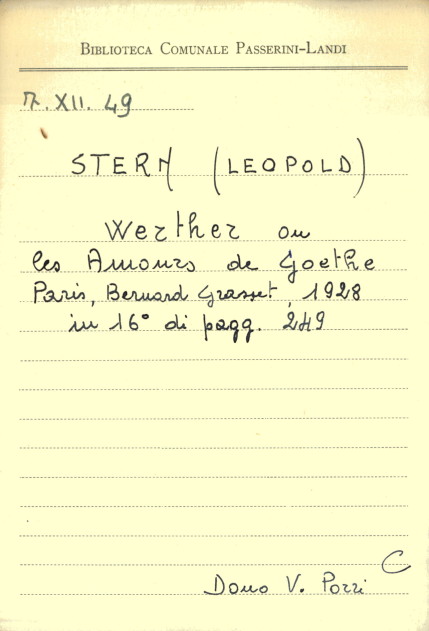 BIBLIOTECA COMUNALE PASSERINI-LANDI
7. XII. 49
STERN (LEOPOLD)
Werther ou
les Amours de Goethe
Paris, Bernard Grasset, 1928
in 16° di pagg. 249
C
Dono V. Pozzi